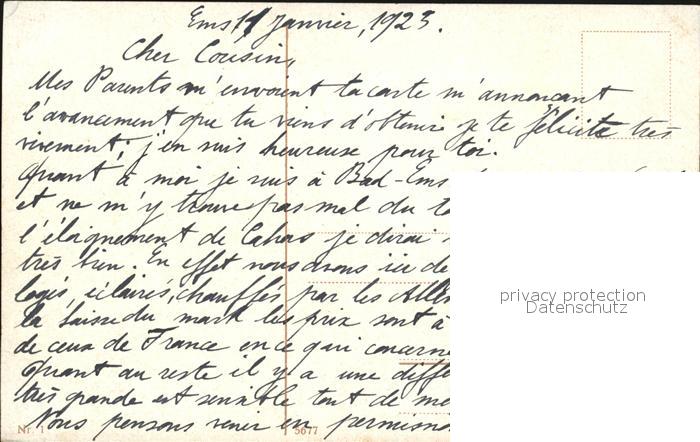 Ems 11 Janvier, 1923.
Cher Cousin,
Mes Parents m'envoient ta carte m'annonçant
l'avancement que tu viens d'obtenir je te félicite très
vivement; j'en suis heureuse pour toi.
Quant à moi je suis à Bad-Ems
et ne m'y trouve pas mal du to
l'éloignement de Cahors je dirai
très bien. En effet nous avons ici de
logés, éclairés, chauffés par les Alle
la baisse du mark les prix sont à
de ceux de France en ce qui concerne
Quant au reste il y a une diffé
très grande et sensible tout de mê
Nous pensons venir en permission
privacy protection
Datenschutz
Nr. 1
5677